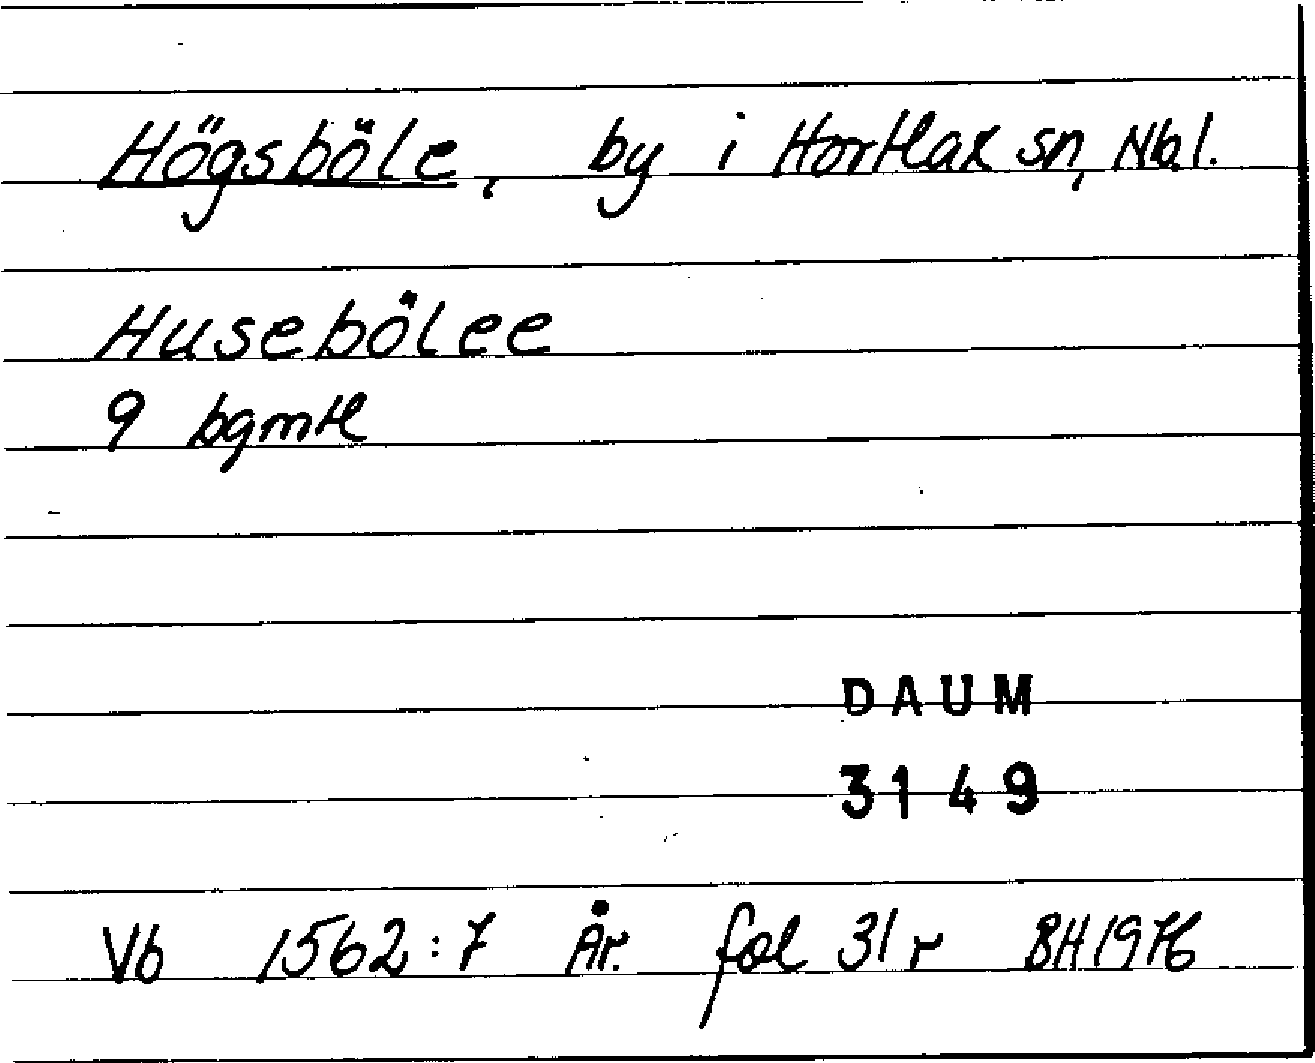 Högsböle, by i Hortlax sn, Nb.l.
Husebölee
9 bgmtl
DAUM
3149
Vb 1562:7 År. fol 31 r BH 1976